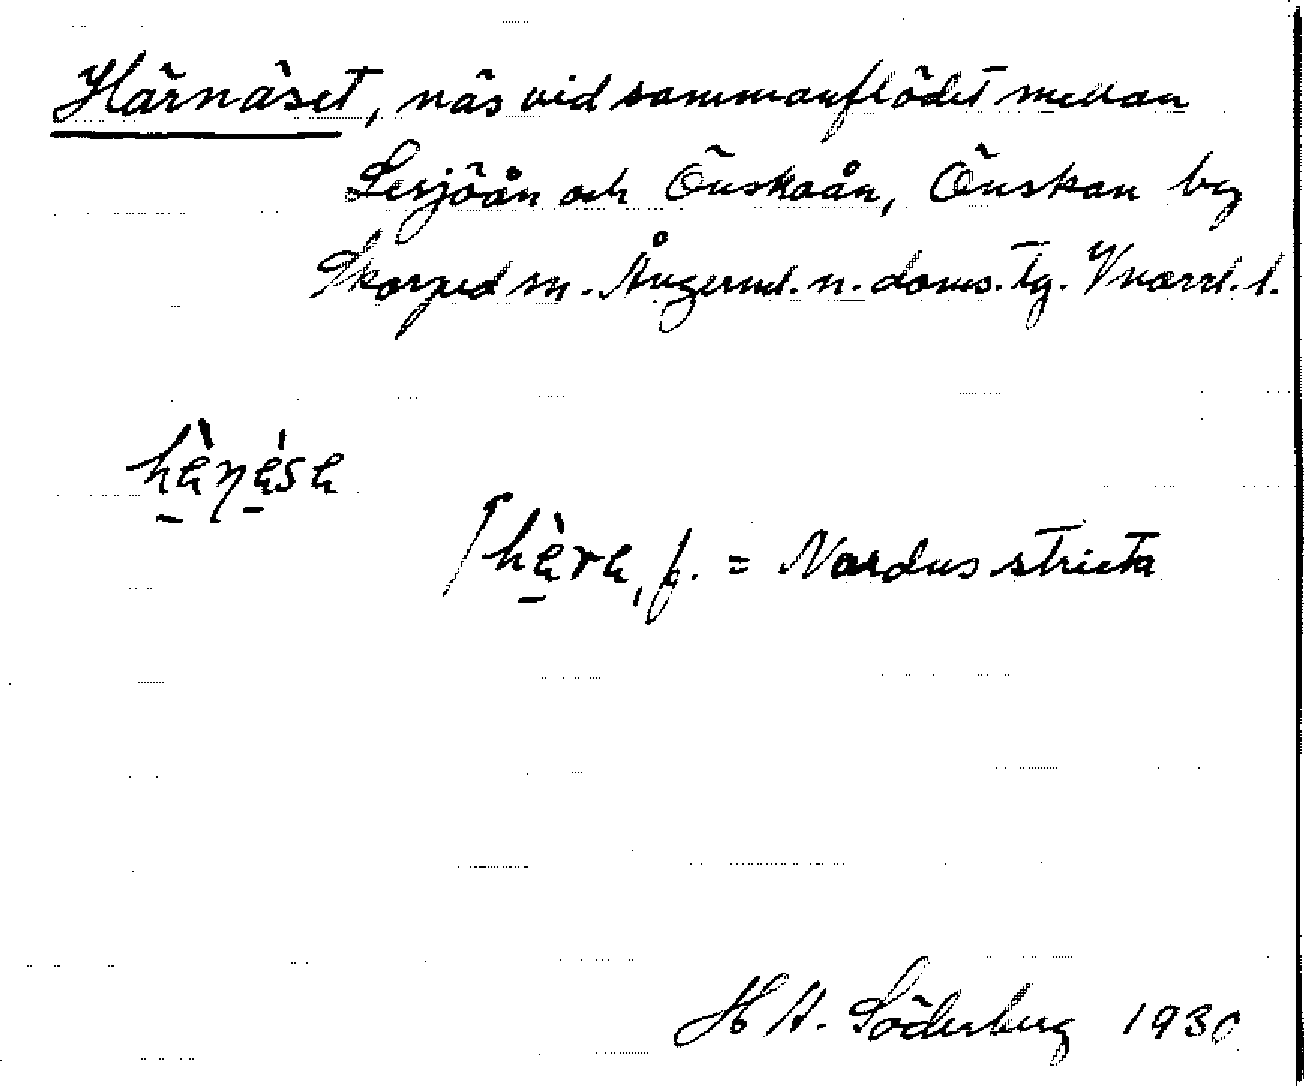 Härnäset, näs vid sammanflödet mellan
Lesjöån och Önskaån, Önskan by
Skorped sn. Ångerml. n. doms. tg. Vnorrl. l.
hän̩äsa
/hära, f. = Nardus stricta
H A. Söderberg 1930